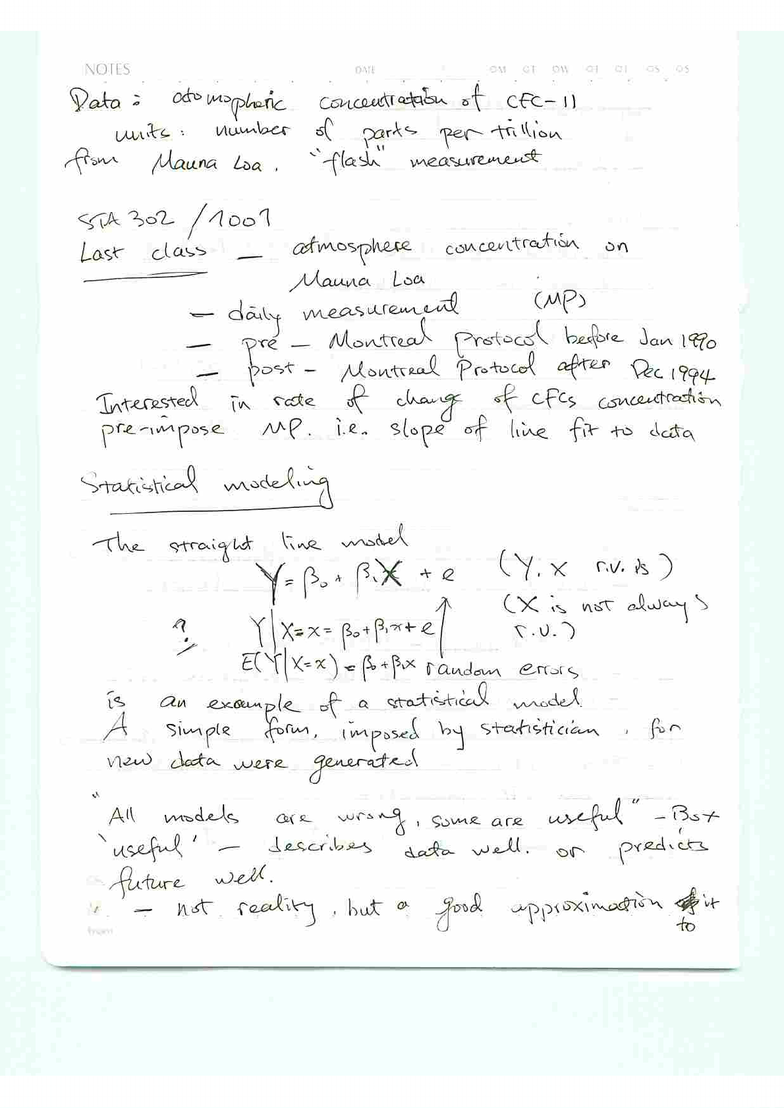 NOTES
DATE
Data: atomospheric concentration of CFC-11
units: number of parts per trillion
from Mauna Loa. "flash" measurement
STA 302 / 1001
Last class — atmosphere concentration on
Mauna Loa
— daily measurement (MP)
— pre — Montreal Protocol before Jan 1990
— post — Montreal Protocol after Dec 1994
Interested in rate of change of CFCs concentration
pre-impose MP. i.e. slope of line fit to data
Statistical modeling
The straight line model
Y = β₀ + β₁X + e (Y, X r.v.'s)
(X is not always
? Y|X=x = β₀+β₁x+e r.v.)
E(Y|X=x) = β₀+β₁x random errors
is an example of a statistical model
A simple form, imposed by statistician, for
new data were generated
"All models are wrong, some are useful" — Box
'useful' — describes data well. or predicts
future well.
— not reality, but a good approximation it
to